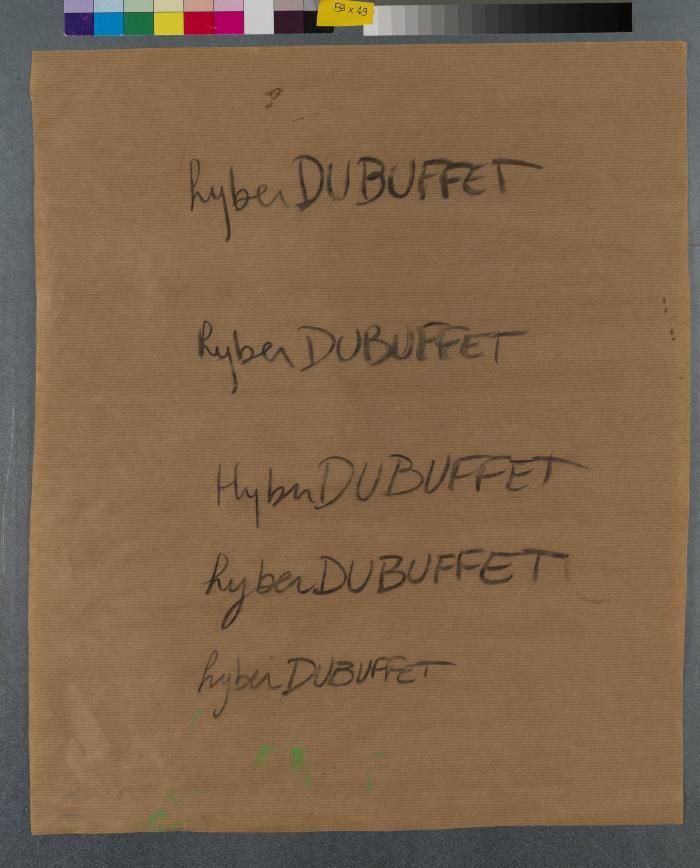 59 x 49
hyberDUBUFFET
hyberDUBUFFET
HyberDUBUFFET
hyberDUBUFFET
hyberDUBUFFET